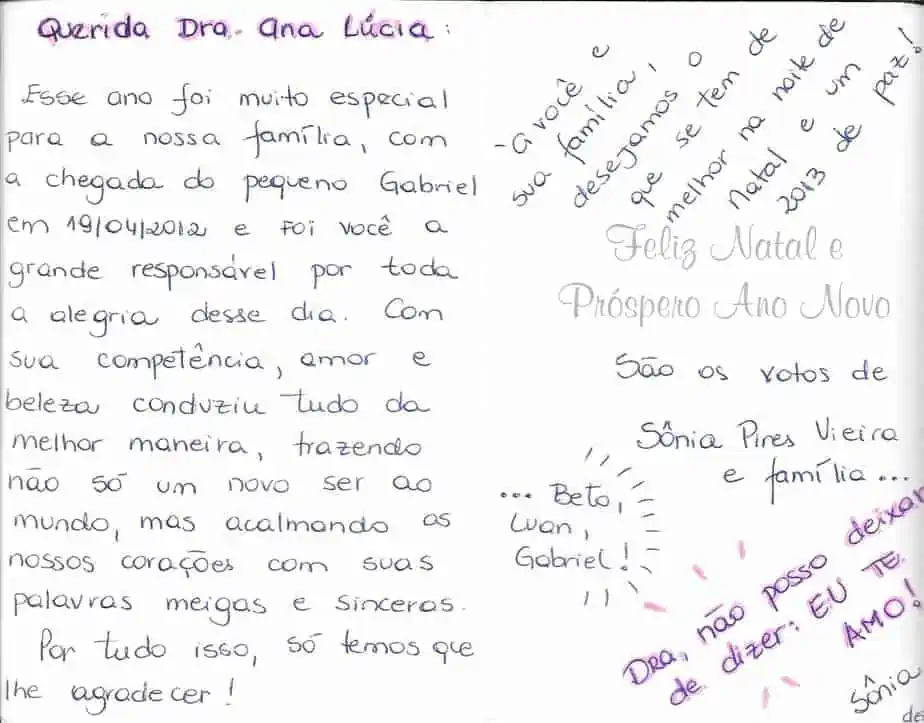 Querida Dra. Ana Lúcia:
Esse ano foi muito especial
para a nossa família, com
a chegada do pequeno Gabriel
em 19/04/2012 e foi você a
grande responsável por toda
a alegria desse dia. Com
sua competência, amor e
beleza conduziu tudo da
melhor maneira, trazendo
não só um novo ser ao
mundo, mas acalmando os
nossos corações com suas
palavras meigas e sinceras.
Por tudo isso, só temos que
lhe agradecer!
- A você e
sua família,
desejamos o
que se tem de
melhor na noite de
Natal e um
2013 de paz!
Feliz Natal e
Próspero Ano Novo
São os votos de
Sônia Pires Vieira
e família...
... Beto,
Luan,
Gabriel!
Dra, não posso deixar
de dizer: EU TE
AMO!
Sônia